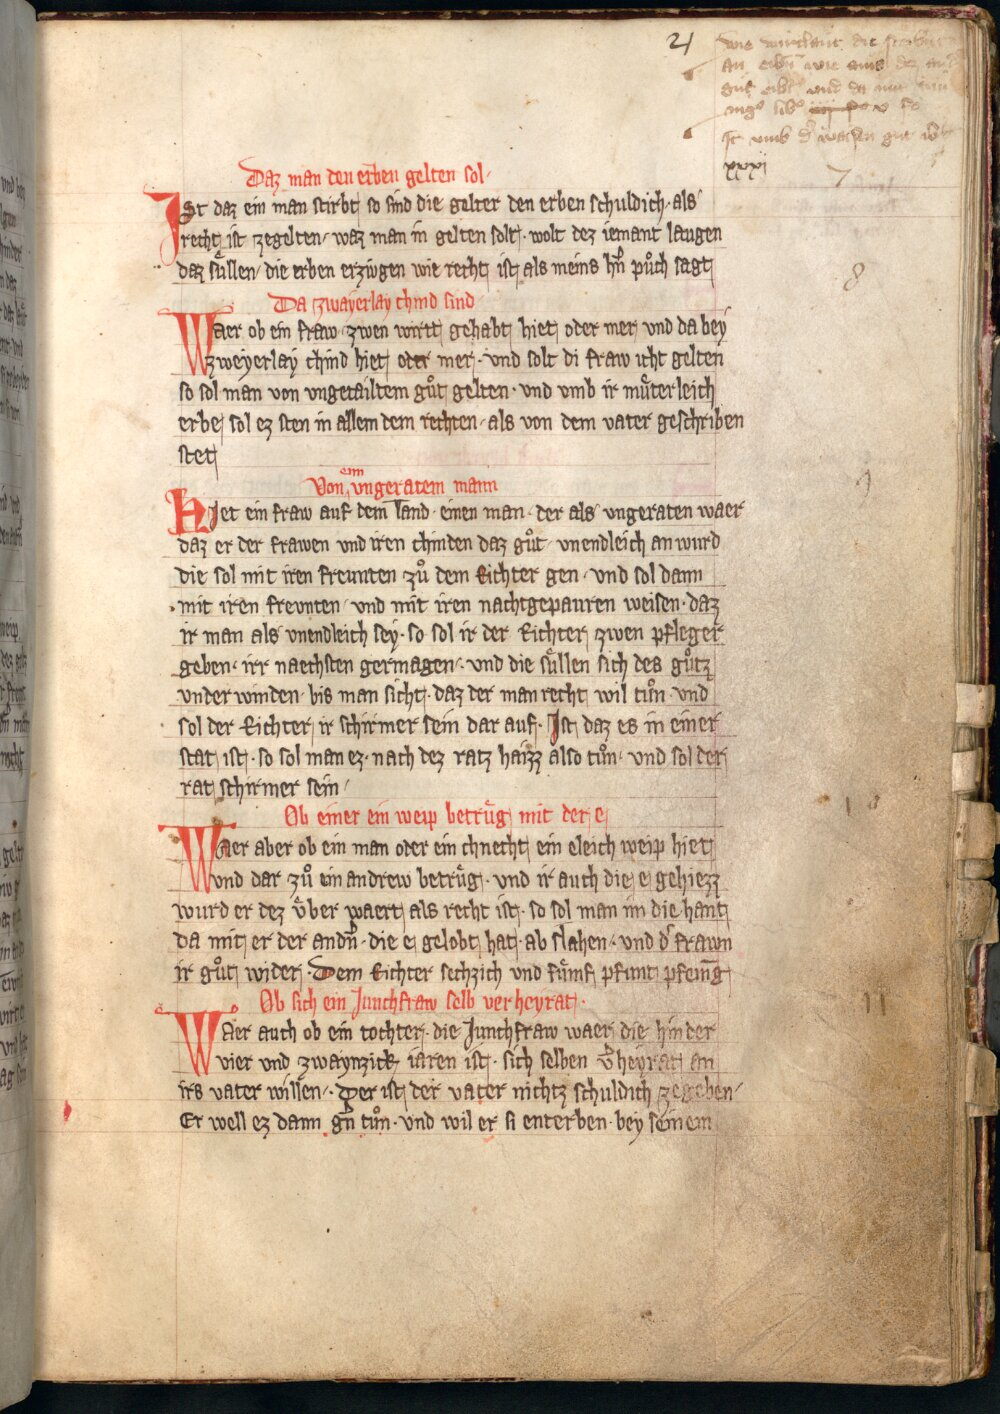 21
xxxj
7
Daz man den erben gelten sol
Ist daz ein man stirbt so sind die gelter den erben schuldich · als
recht ist zegelten · waz man in gelten solt · wolt dez iemant laugen
daz suͤllen die erben erziugen wie recht ist als meins hr̄n puͦch sagt
8
Da zwayerlay chind sind
Waer ob ein fraw zwen wirtt gehabt hiet oder mer vnd da bey
zweyerlay chind hiet oder mer · vnd solt di fraw icht gelten
so sol man von vngetailtem guͦt gelten · vnd vmb ir muͤterleich
erbe sol ez sten in allem dem rechten · als von dem vater geschriben
stet
9
Von eim vngeratem mann
Hiet ein fraw auf dem land · einen man · der als vngeraten waer
daz er der frawen vnd iren chinden daz guͦt · vnendleich an wurd
die sol mit iren freunten zuͦ dem Richter gen · vnd sol dann
mit iren frevnten · vnd mit iren nachtgepauren weisen · daz
ir man als vnendleich sey · so sol ir der Richter zwen pfleger
geben · irr naechsten germagen · vnd die suͤllen sich des guͦtz
vnder winden · bis man sicht · daz der man recht wil tuͦn · vnd
sol der Richter ir schirmer sein dar auf · Ist daz es in einer
stat ist · so sol man ez · nach dez ratz haizz also tuͦn · vnd sol der
rat schirmer sein
10
Ob einer ein weip betruͤg mit der e
Waer aber ob ein man oder ein chnecht ein eleich weip hiet
vnd dar zuͦ ein andrew betruͤg · vnd ir auch die e gehiezz
wurd er dez vͤber waert als recht ist · so sol man im die hant
da mit er der andr̄n · die e gelobt hat · ab slahen · vnd d͛ frawn
ir guͦt wider · Dem Richter sechzich vnd fuͤmf pfunt pfenīg
11
Ob sich ein Junchfraw selb verheyrat ·
Waer auch ob ein tochter · die Junchfraw waer die hinder
vier vnd zwaynzick iaren ist · sich selben v͛heyrat an
irs vater willen · Der ist der vater nichtz schuldich zegeben
Er well ez dann gn̄ tuͦn · vnd wil er si enterben · bey seinem